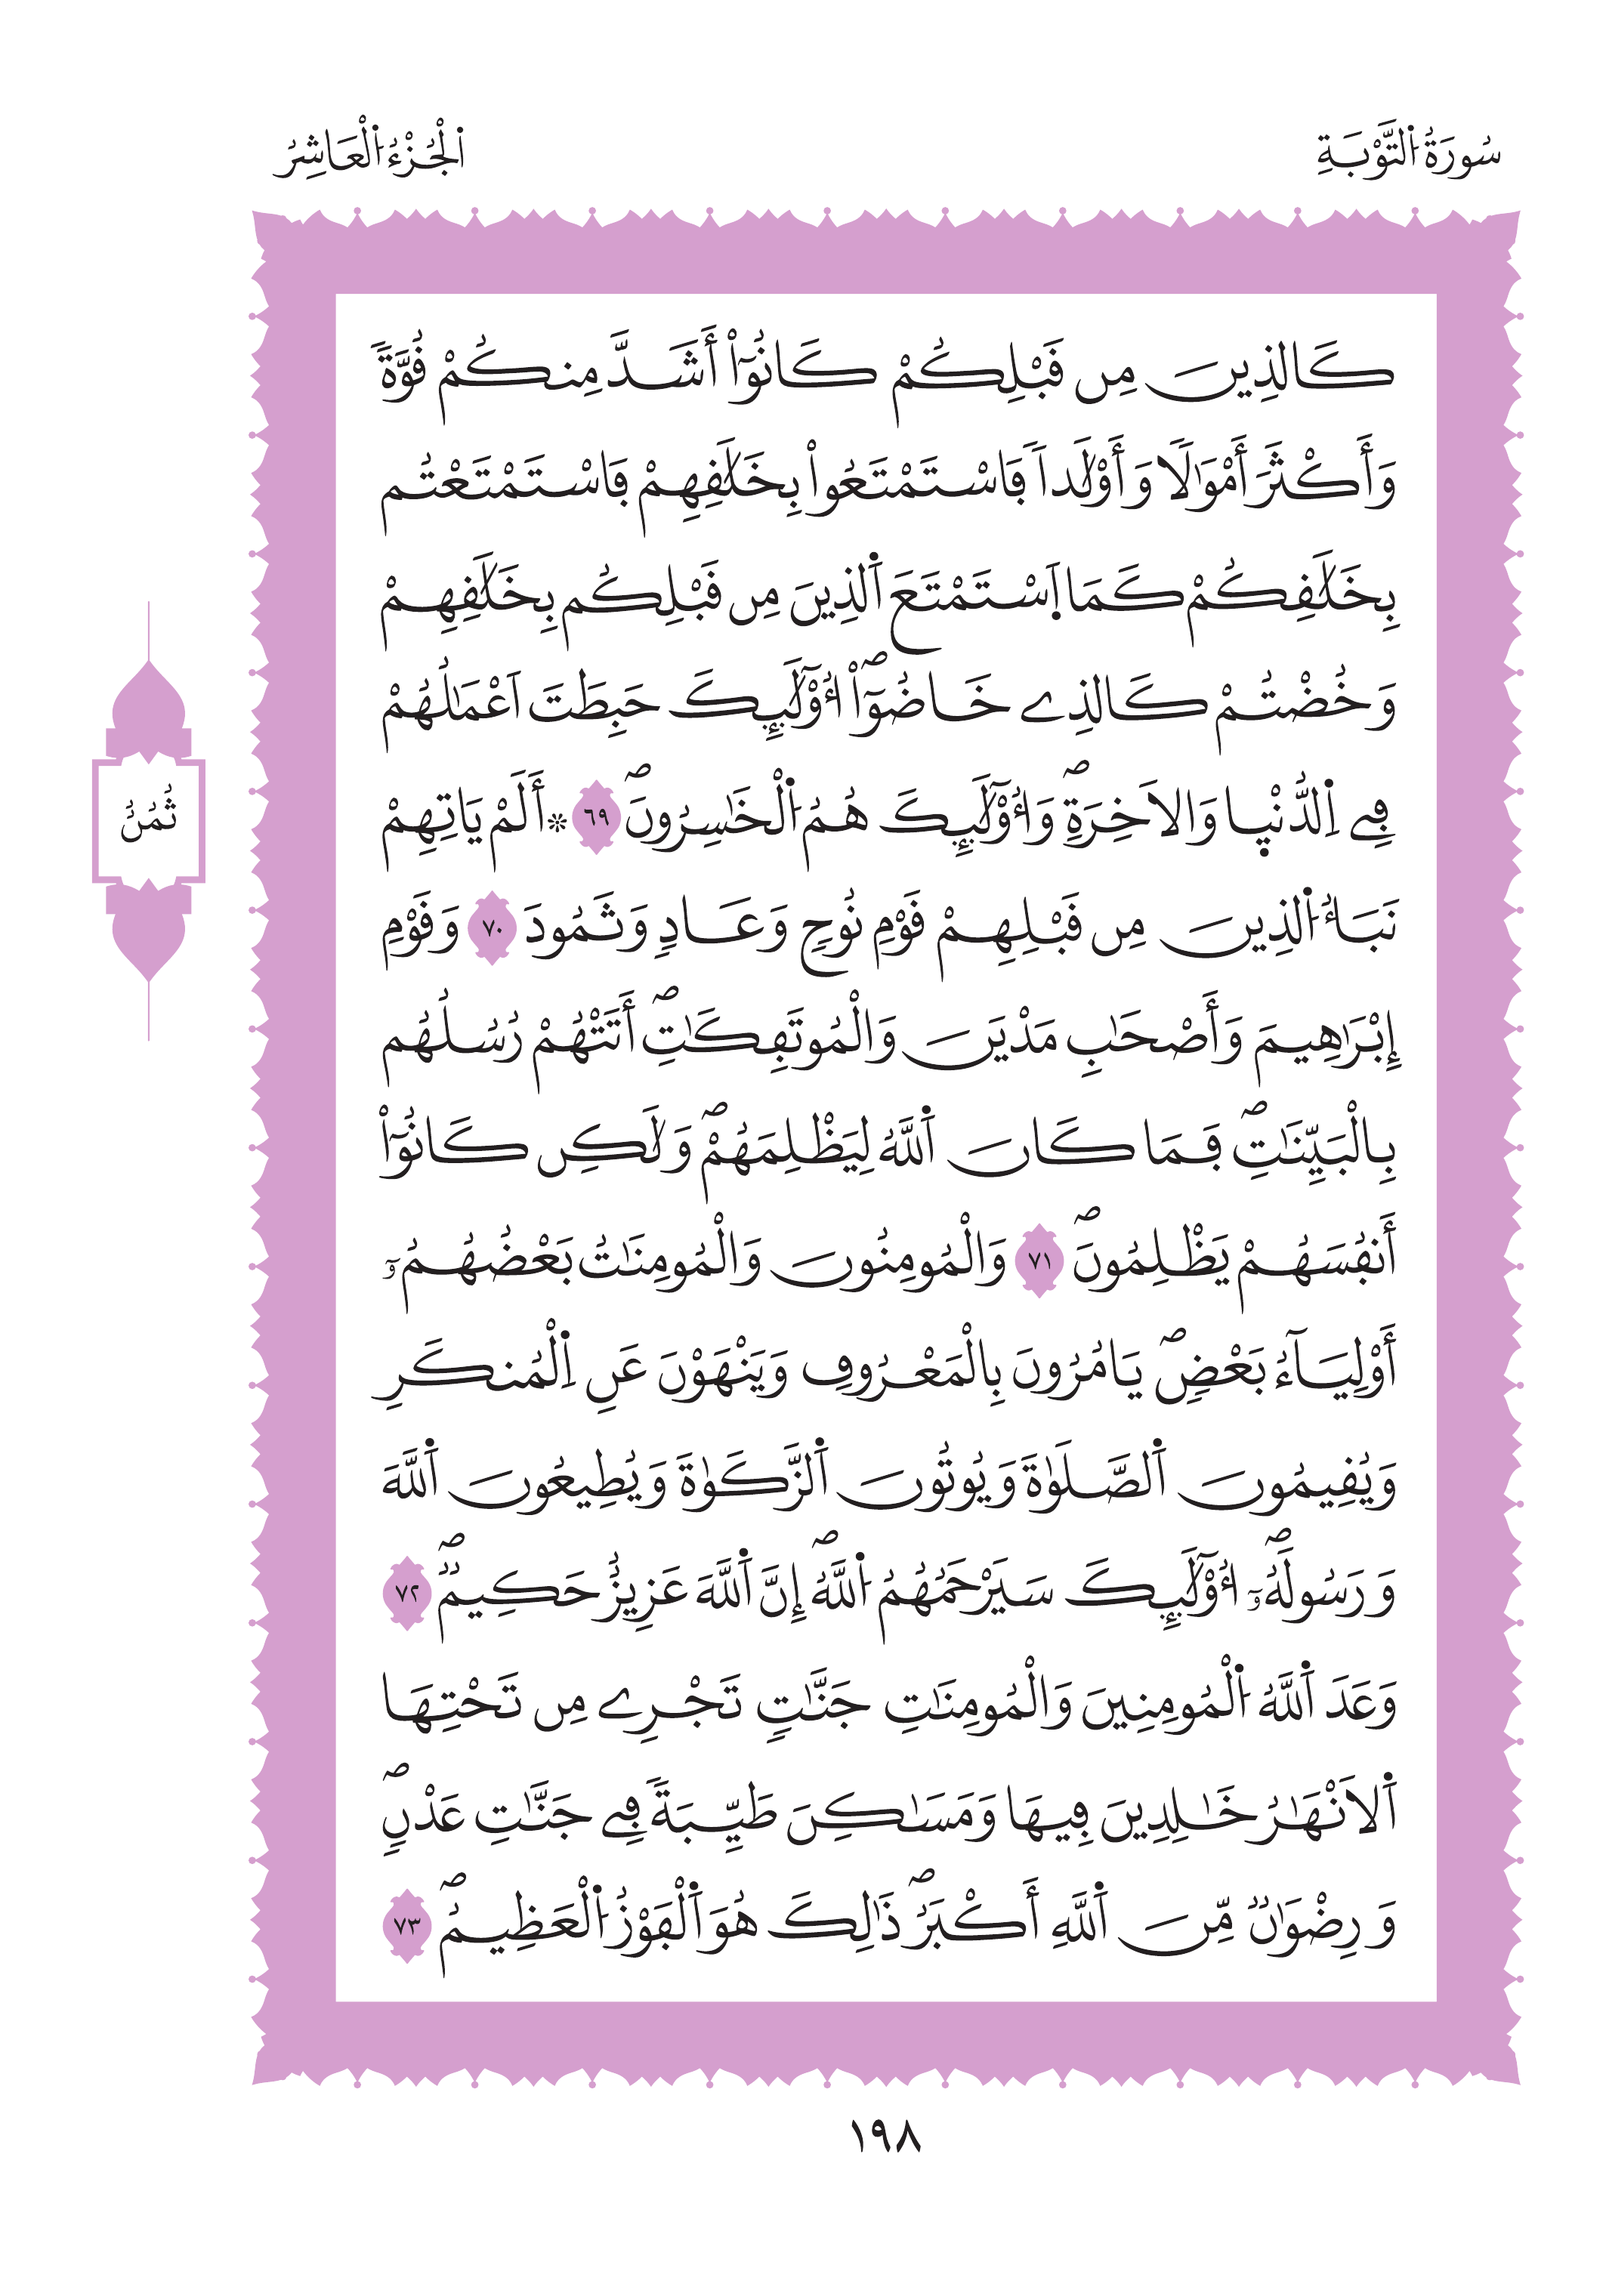 سُورَةُ اُلتَّوْبَةِ
اُلْجُزْءُ اُلْعَاشِرُ
كَالذِينَ مِن قَبْلِكُمْ كَانُوٓاْ أَشَدَّ مِنكُمْ قُوَّةٗ
وَأَكْثَرَ أَمْوَٰلٗا وَأَوْلَٰداٗ فَاسْتَمْتَعُواْ بِخَلَٰقِهِمْ فَاسْتَمْتَعْتُم
بِخَلَٰقِكُمْ كَمَا اَ۪سْتَمْتَعَ اَ۬لذِينَ مِن قَبْلِكُم بِخَلَٰقِهِمْ
وَخُضْتُمْ كَالذِے خَاضُوٓاْۖ أُوْلَٰٓئِكَ حَبِطَتَ اَعْمَٰلُهُمْ
فِے اِ۬لدُّنْي۪ا وَالَاخِرَةِۖ وَأُوْلَٰٓئِكَ هُمُ اُ۬لْخَٰسِرُونَۖ ٦٩ ۞ أَلَمْ يَاتِهِمْ
نَبَأُ اُ۬لذِينَ مِن قَبْلِهِمْ قَوْمِ نُوحٖ وَعَادٖ وَثَمُودَ ٧٠ وَقَوْمِ
إِبْرَٰهِيمَ وَأَصْحَٰبِ مَدْيَنَ وَالْمُوتَفِكَٰتِۖ أَتَتْهُمْ رُسُلُهُم
بِالْبَيِّنَٰتِۖ فَمَا كَانَ اَ۬للَّهُ لِيَظْلِمَهُمْۖ وَلَٰكِن كَانُوٓاْ
أَنفُسَهُمْ يَظْلِمُونَۖ ٧١ وَالْمُومِنُونَ وَالْمُومِنَٰتُ بَعْضُهُمُۥٓ
أَوْلِيَآءُ بَعْضٖۖ يَامُرُونَ بِالْمَعْرُوفِ وَيَنْهَوْنَ عَنِ اِ۬لْمُنكَرِ
وَيُقِيمُونَ اَ۬لصَّلَوٰةَ وَيُوتُونَ اَ۬لزَّكَوٰةَ وَيُطِيعُونَ اَ۬للَّهَ
وَرَسُولَهُۥٓۖ أُوْلَٰٓئِكَ سَيَرْحَمُهُمُ اُ۬للَّهُۖ إِنَّ اَ۬للَّهَ عَزِيزٌ حَكِيمٞۖ ٧٢
وَعَدَ اَ۬للَّهُ اُ۬لْمُومِنِينَ وَالْمُومِنَٰتِ جَنَّٰتٖ تَجْرِے مِن تَحْتِهَا
اَ۬لَانْهَٰرُ خَٰلِدِينَ فِيهَا وَمَسَٰكِنَ طَيِّبَةٗ فِے جَنَّٰتِ عَدْنٖۖ
وَرِضْوَٰنٞ مِّنَ اَ۬للَّهِ أَكْبَرُۖ ذَٰلِكَ هُوَ اَ۬لْفَوْزُ اُ۬لْعَظِيمُۖ ٧٣
ثُمُنُ
١٩٨